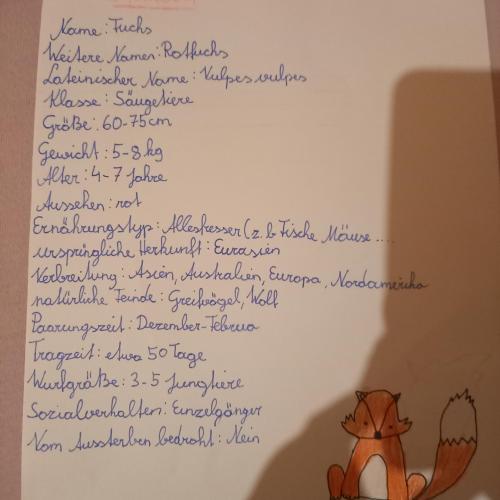 Name: Fuchs
Weitere Namen: Rotfuchs
Lateinischer Name: Vulpes vulpes
Klasse: Säugetiere
Größe: 60-75cm
Gewicht: 5-8 kg
Alter: 4-7 Jahre
Aussehen: rot
Ernährungstyp: Allesfresser (z.b Fische Mäuse ....
ursprüngliche Herkunft: Eurasien
Verbreitung: Asien, Australien, Europa, Nordamerika
natürliche Feinde: Greifvögel, Wolf
Paarungszeit: Dezember-Februa
Tragzeit: etwa 50 Tage
Wurfgröße: 3-5 Jungtiere
Sozialverhalten: Einzelgänger
Vom Aussterben bedroht: Nein